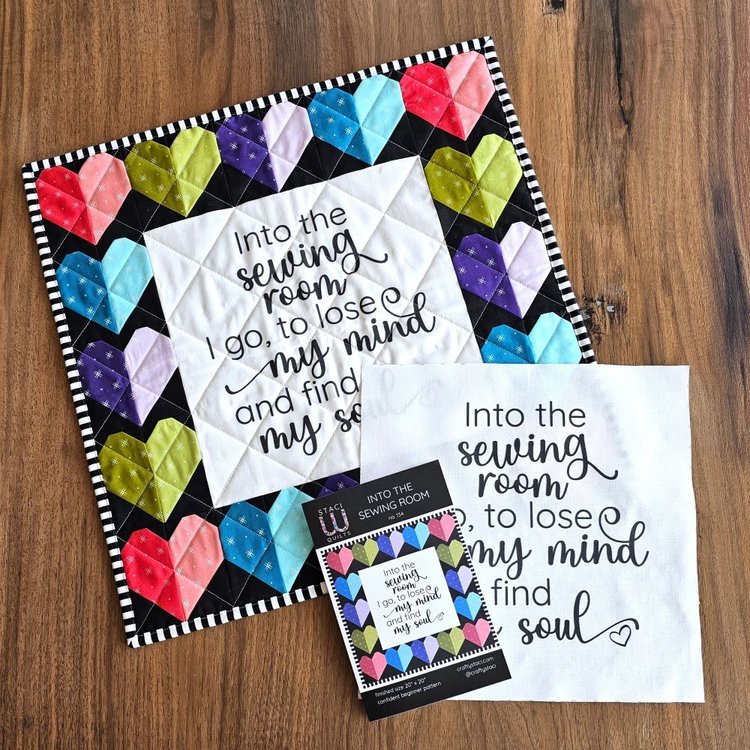 Into the
sewing
room
I go, to lose
my mind
and find
my soul
Into the
sewing
room
, to lose
my mind
find
soul
STACI
QUILTS
INTO THE
SEWING ROOM
no. 134
Into the
sewing
room
I go, to lose
my mind
and find
my soul
craftystaci.com
@craftystaci
finished size 20" x 20"
confident beginner pattern